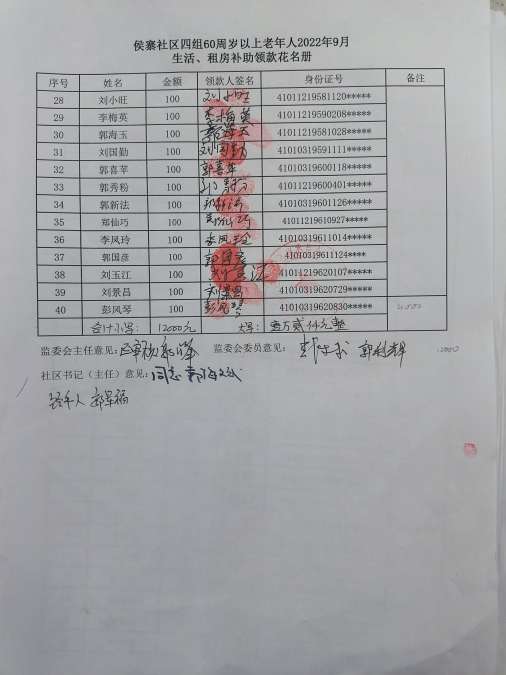 侯寨社区四组60周岁以上老年人2022年9月
生活、租房补助领款花名册
序号 姓名 金额 领款人签名 身份证号 备注
28 刘小旺 100 刘小旺 41011219581120*****
29 李梅英 100 李梅英 41011219590208*****
30 郭海玉 100 41011219581028*****
31 刘国勤 100 刘国勤 41010319591111*****
32 郭喜苹 100 郭喜苹 41010319600118*****
33 郭秀粉 100 41011219600401*****
34 郭新法 100 41010319601126*****
35 郑仙巧 100 41011219610927*****
36 李凤玲 100 李凤玲 41010319611014*****
37 郭国彦 100 郭国彦 41010319611124****
38 刘玉江 100 41011219620107*****
39 刘景昌 100 刘景昌 41010319620729*****
40 彭凤琴 100 彭凤琴 41010319620830*****
合计小写: 12000元 大写: 壹万贰仟元整
监委会主任意见: 监委会委员意见:
社区书记（主任）意见: 同意
经手人 郭军福